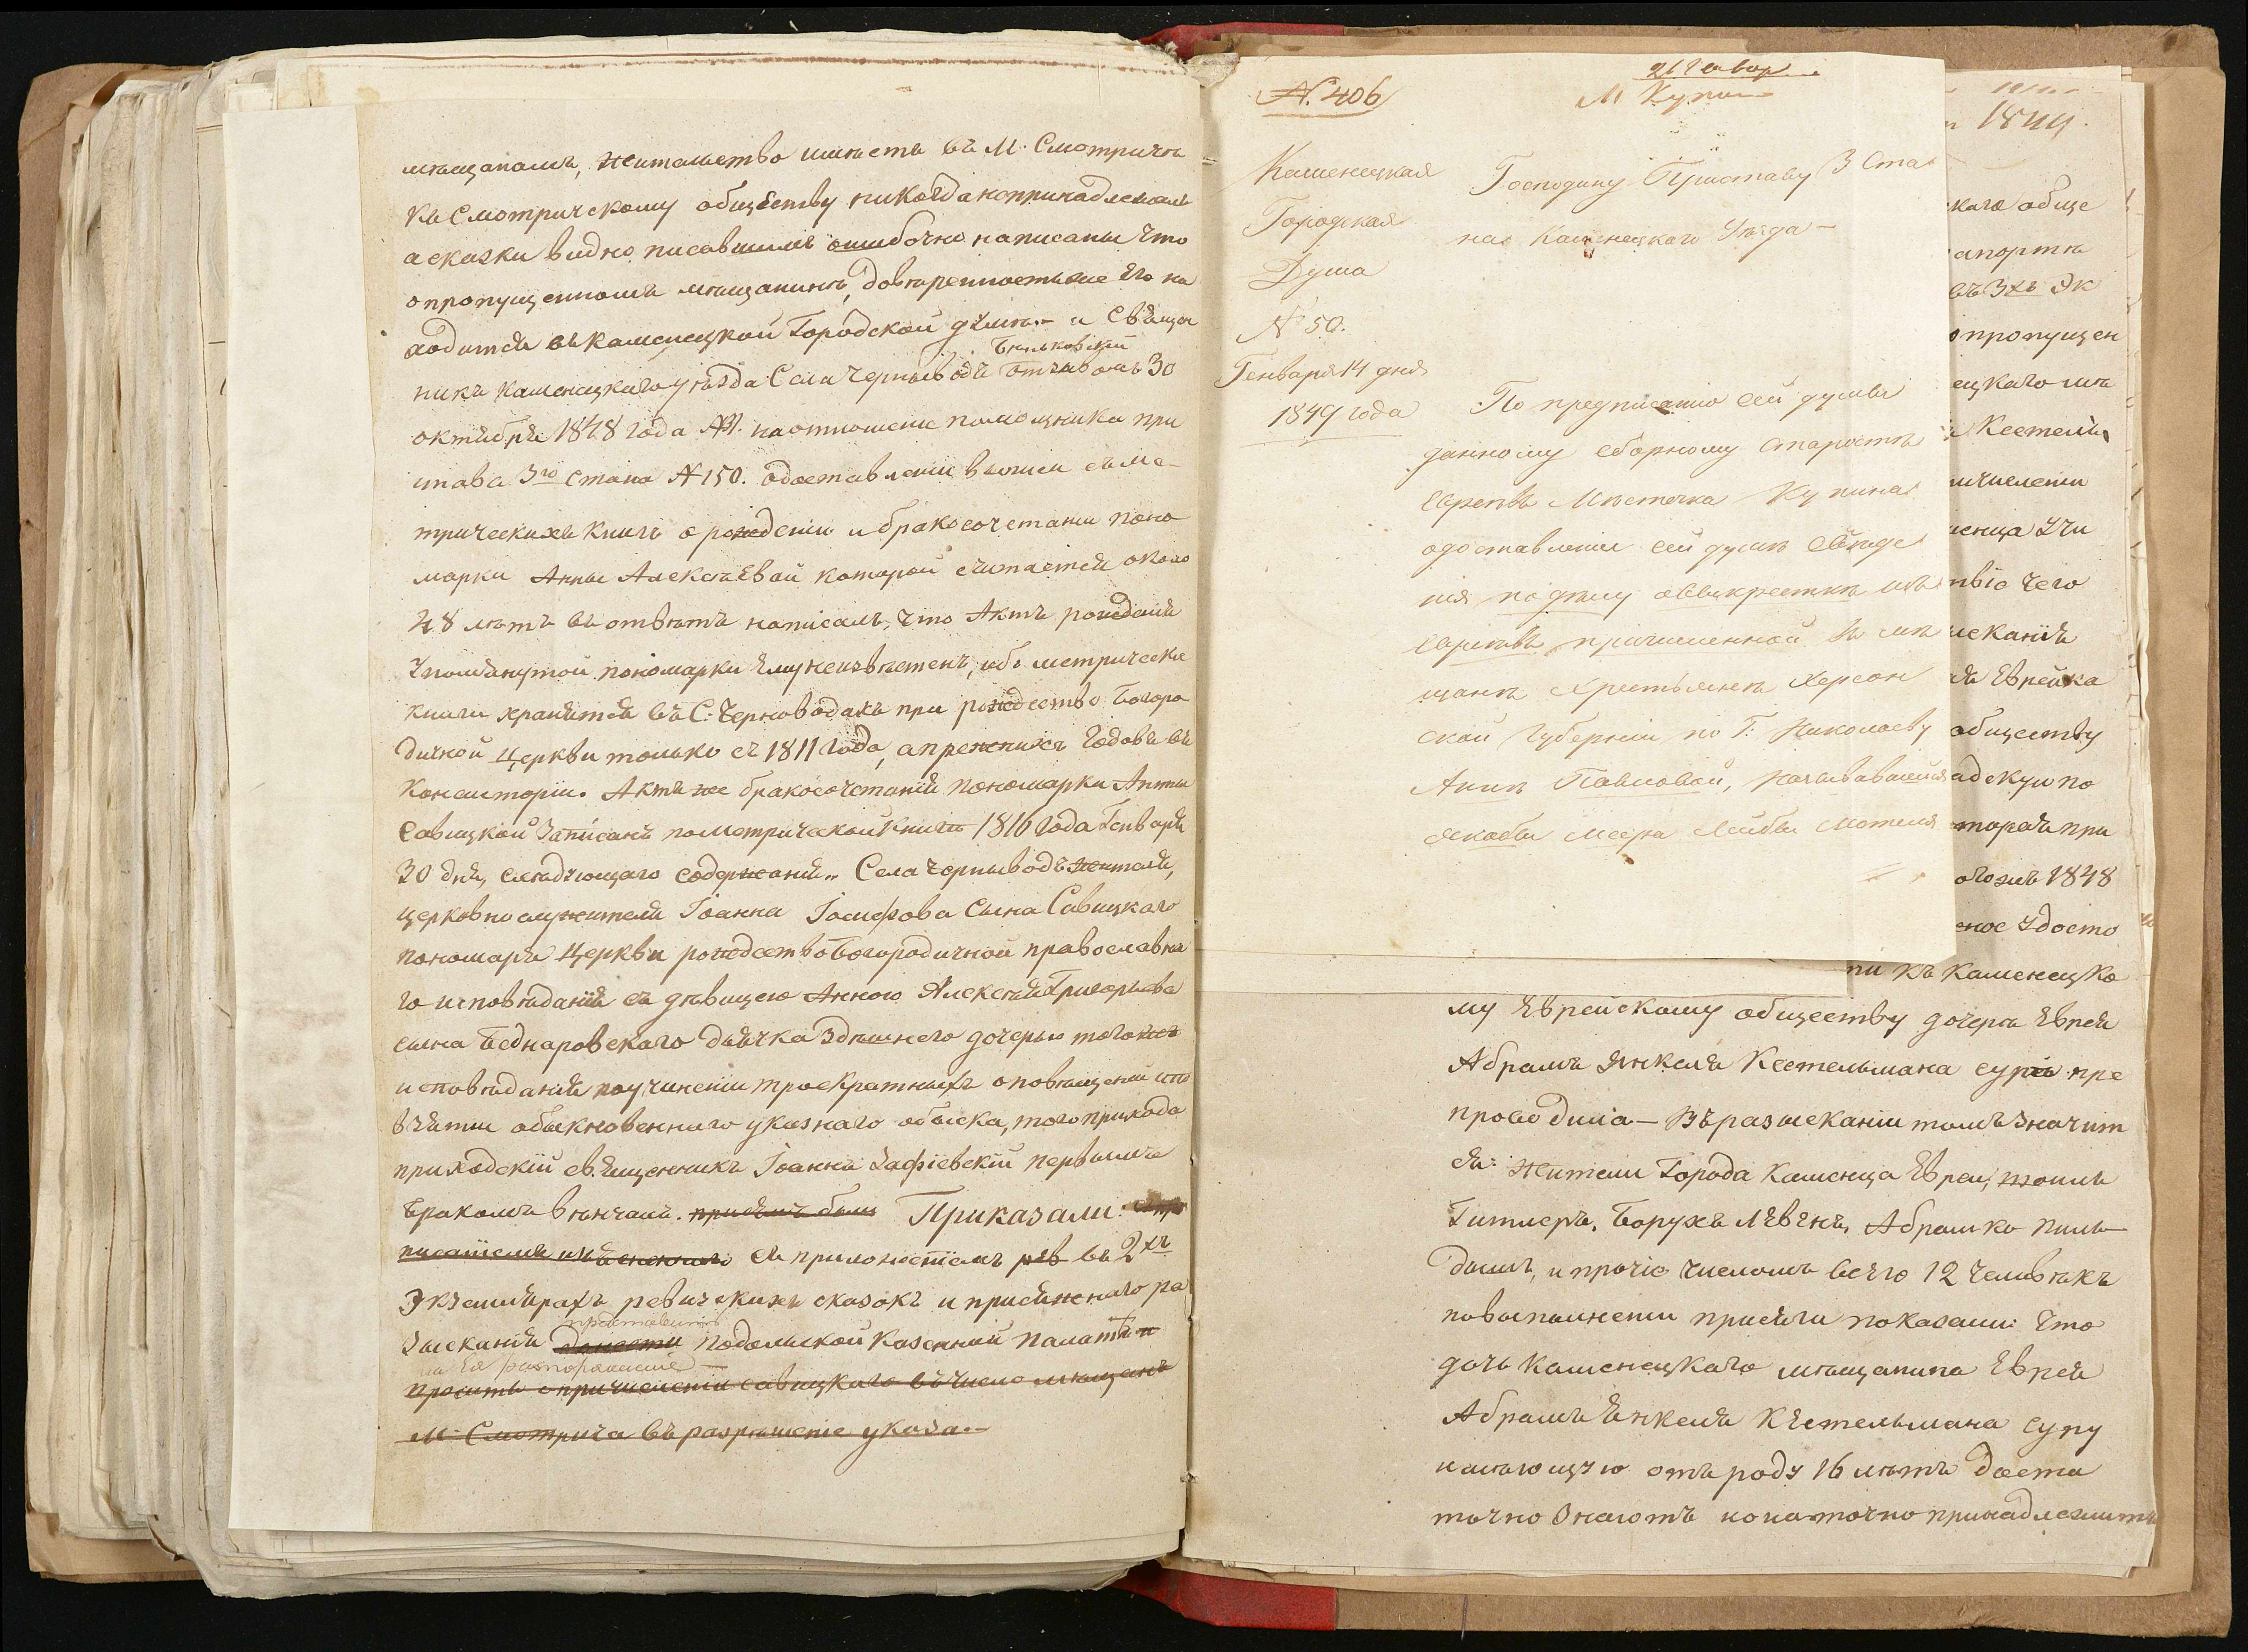 мѣщанамъ, жительство имѣетъ въ М. Смотричѣ
къ Смотрическому обществу никогда непринадлежалъ
а сказки видно писавшимъ ошибочно написаны что
о пропущенномъ мѣщанинѣ, довѣренность же его на
ходится въ каменецкой Городской думѣ. – и Свѣщен
Бѣльковскій
никъ Каменецкаго уѣзда Села Черныводъ отзывомъ 30
октября 1848 года на отношеніе помощника при
става 3го Стана N 150. о доставленіи выписи съ ме-
трическихъ Книгъ о рожденіи и бракосочетаніи поно
марки Анны Алексѣевой которой считается около
48 лѣтъ въ отвѣтъ написалъ, что Актъ рожденія
упомянутой пономарки ему неизвѣстенъ, ибо метрическіе
книги хранятся въ С. Черноводахъ при рождество Богоро
дичной Церкви только съ 1811 года, а прежнихъ Годовъ въ
Консисторіи. Актъ же бракосочетанія пономарки Анны
Савицкой Записанъ по метрической книгѣ 1816 года Генваря
30 дня, слѣдующаго содержанія„ Села Черныводъ жителя,
церковнослужителя Іоанна Іосифова Сына Савицкаго
пономаря Церкви рождество Богородичной православна
го исповѣданія съ дѣвицею Анною Алексѣя Григорьева
сына Беднаровскаго дьячка Здѣшнего дочерью того же
исповѣданія по учиненіи троекратныхъ оповѣщеній и по
взятіи обыкновеннаго указнаго обыска, того прихода
приходскій священникъ Іоаннъ Зафіевскій первымъ
бракомъ вѣнчаны. Приказали:
съ приложеніемъ въ 2хъ
Экземплярахъ ревизскихъ сказокъ и присяжнаго ра
представить
зысканія донести Подольской Казенной палатѣ и
на Ея распоряженіе –
просить о причисленіи Савицкаго въ число мѣщанъ
М. Смотрича въ разрѣшеніе указа. –
N. 406
21 Генвар
М Купин
Каменецкая
Городская
Дума
N 50.
Генваря 14 дня
1849 года
Господину Приставу 3 Ста
на Каменецкаго Уѣзда –
По предписанію сей думы
данному сборному Старостѣ
Евреевъ Мѣстечка Купина
о доставленіи сей думѣ Свѣдѣ
нія по дѣлу о выкресткѣ изъ
Евреевъ причисленной въ мѣ
щанѣ Херсон
ской Губерніи по Г. Николаеву
Аннѣ Павловой, называвшейся
Меера Лейбы Мотеля
1849.
каго обще
апортѣ
въ 3хъ Эк
опропущен
ецкаго мѣ
Кестель
ичисленіи
менца Учи
твіе чего
ысканія
я Еврейка
обществу
торая при
1848
ное Удосто
ли къ Каменецко
му Еврейскому обществу дочерь Еврея
Абрама Янкеля Кестельмана Суру пре
проводила – Въ разысканіи томъ Значит
ся: жители Города Каменца Евреи,
Гитлеръ, Борухъ Абрамко
и прочіе числомъ всего 12 человѣкъ
по выполненіи присяги показали: что
дочь Каменецкаго мѣщанина Еврея
Абрама Янкеля Кестельмана Суру
имѣющую отъ роду 16 лѣтъ доста
точно Знаютъ и она точно принадлежитъ